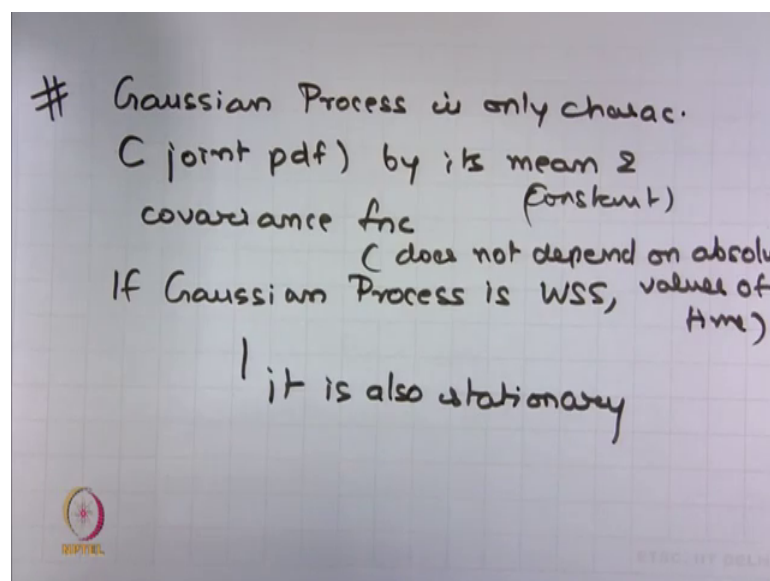 # Gaussian Process is only charac.
( joint pdf) by its mean &
(constant)
covariance fnc
( does not depend on absolu
values of
time)
If Gaussian Process is WSS,
it is also stationary
NPTEL
ETSC, IIT DELH